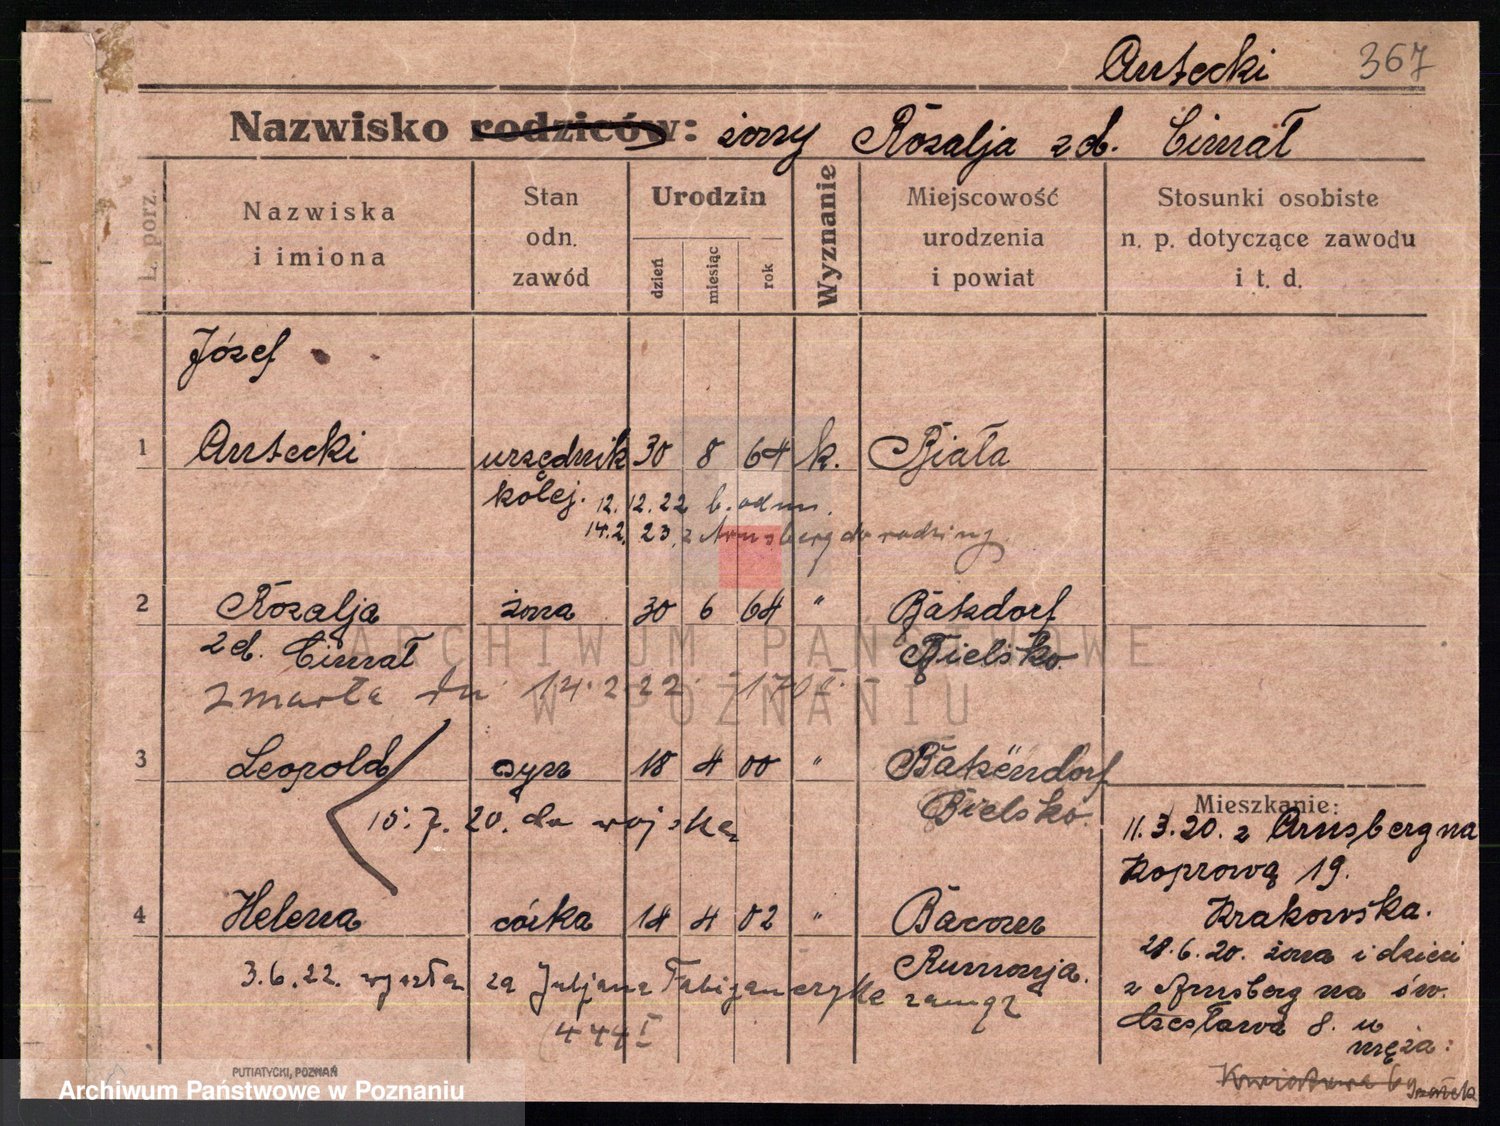 Antecki 367
Nazwisko rodziców: żony Rozalja zd. Cimał
L. porz.
Nazwiska i imiona
Stan odn. zawód
Urodzin
dzień miesiąc rok
Wyznanie
Miejscowość urodzenia i powiat
Stosunki osobiste n. p. dotyczące zawodu i t. d.
Józef
1 Antecki urzędnik 30 8 64 k. Biała
kolej. 12.12.22 b. odm.
14.2.23 z Arnsberg do rodziny
2 Rozalja żona 30 6 64 " Batzdorf
zd. Cimał Bielsko
zmarła dn. 14.2.22 170
3 Leopold syn 18 4 00 "
Bielsko.
15.7.20. do wojska
4 Helena córka 14 4 02 " Bacou
Rumonja.
3.6.22. wyszła za Juljana Fabijanczyka zamąż
444 I
Mieszkanie:
11.3.20. z Arnsberg na
Koprową 19.
Krakowska.
28.6.20. żona i dzieci
z Arnsberg na św.
Czesława 8. u
męża:
PUTIATYCKI, POZNAŃ
ARCHIWUM PAŃSTWOWE
W POZNANIU
Archiwum Państwowe w Poznaniu